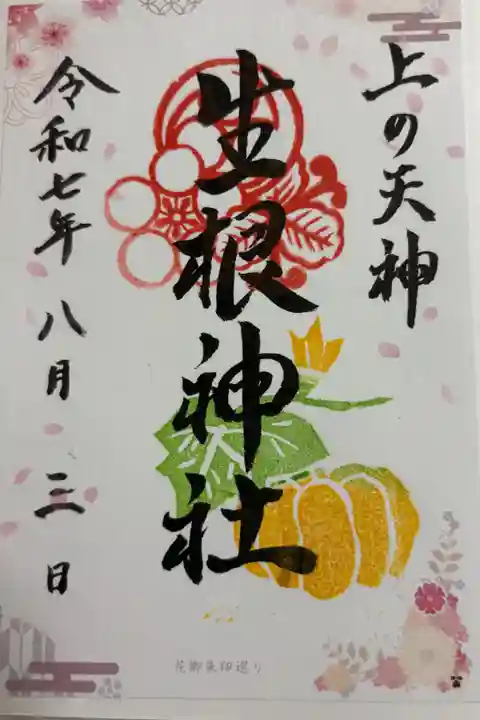 上の天神
生根神社
令和七年 八月 三日
花御朱印巡り